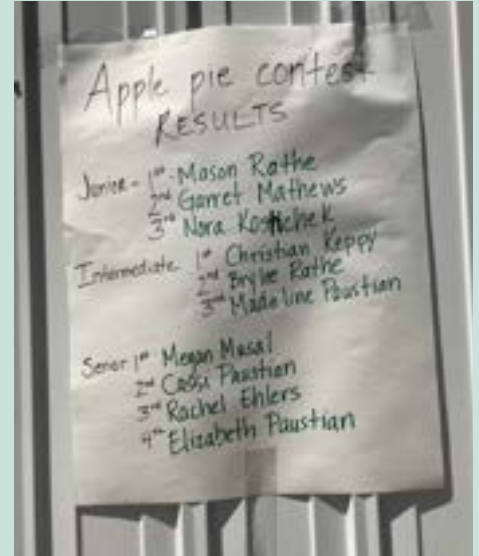 Apple pie contest
RESULTS
Junior - 1st - Mason Rathe
2nd Garret Mathews
3rd Nora
Intermediate 1st Christian Keppy
2nd Rathe
3rd Madeline Paustian
Senor 1st Megan Musal
2nd Cassi Paustian
3rd Rachel Ehlers
4th Elizabeth Paustian